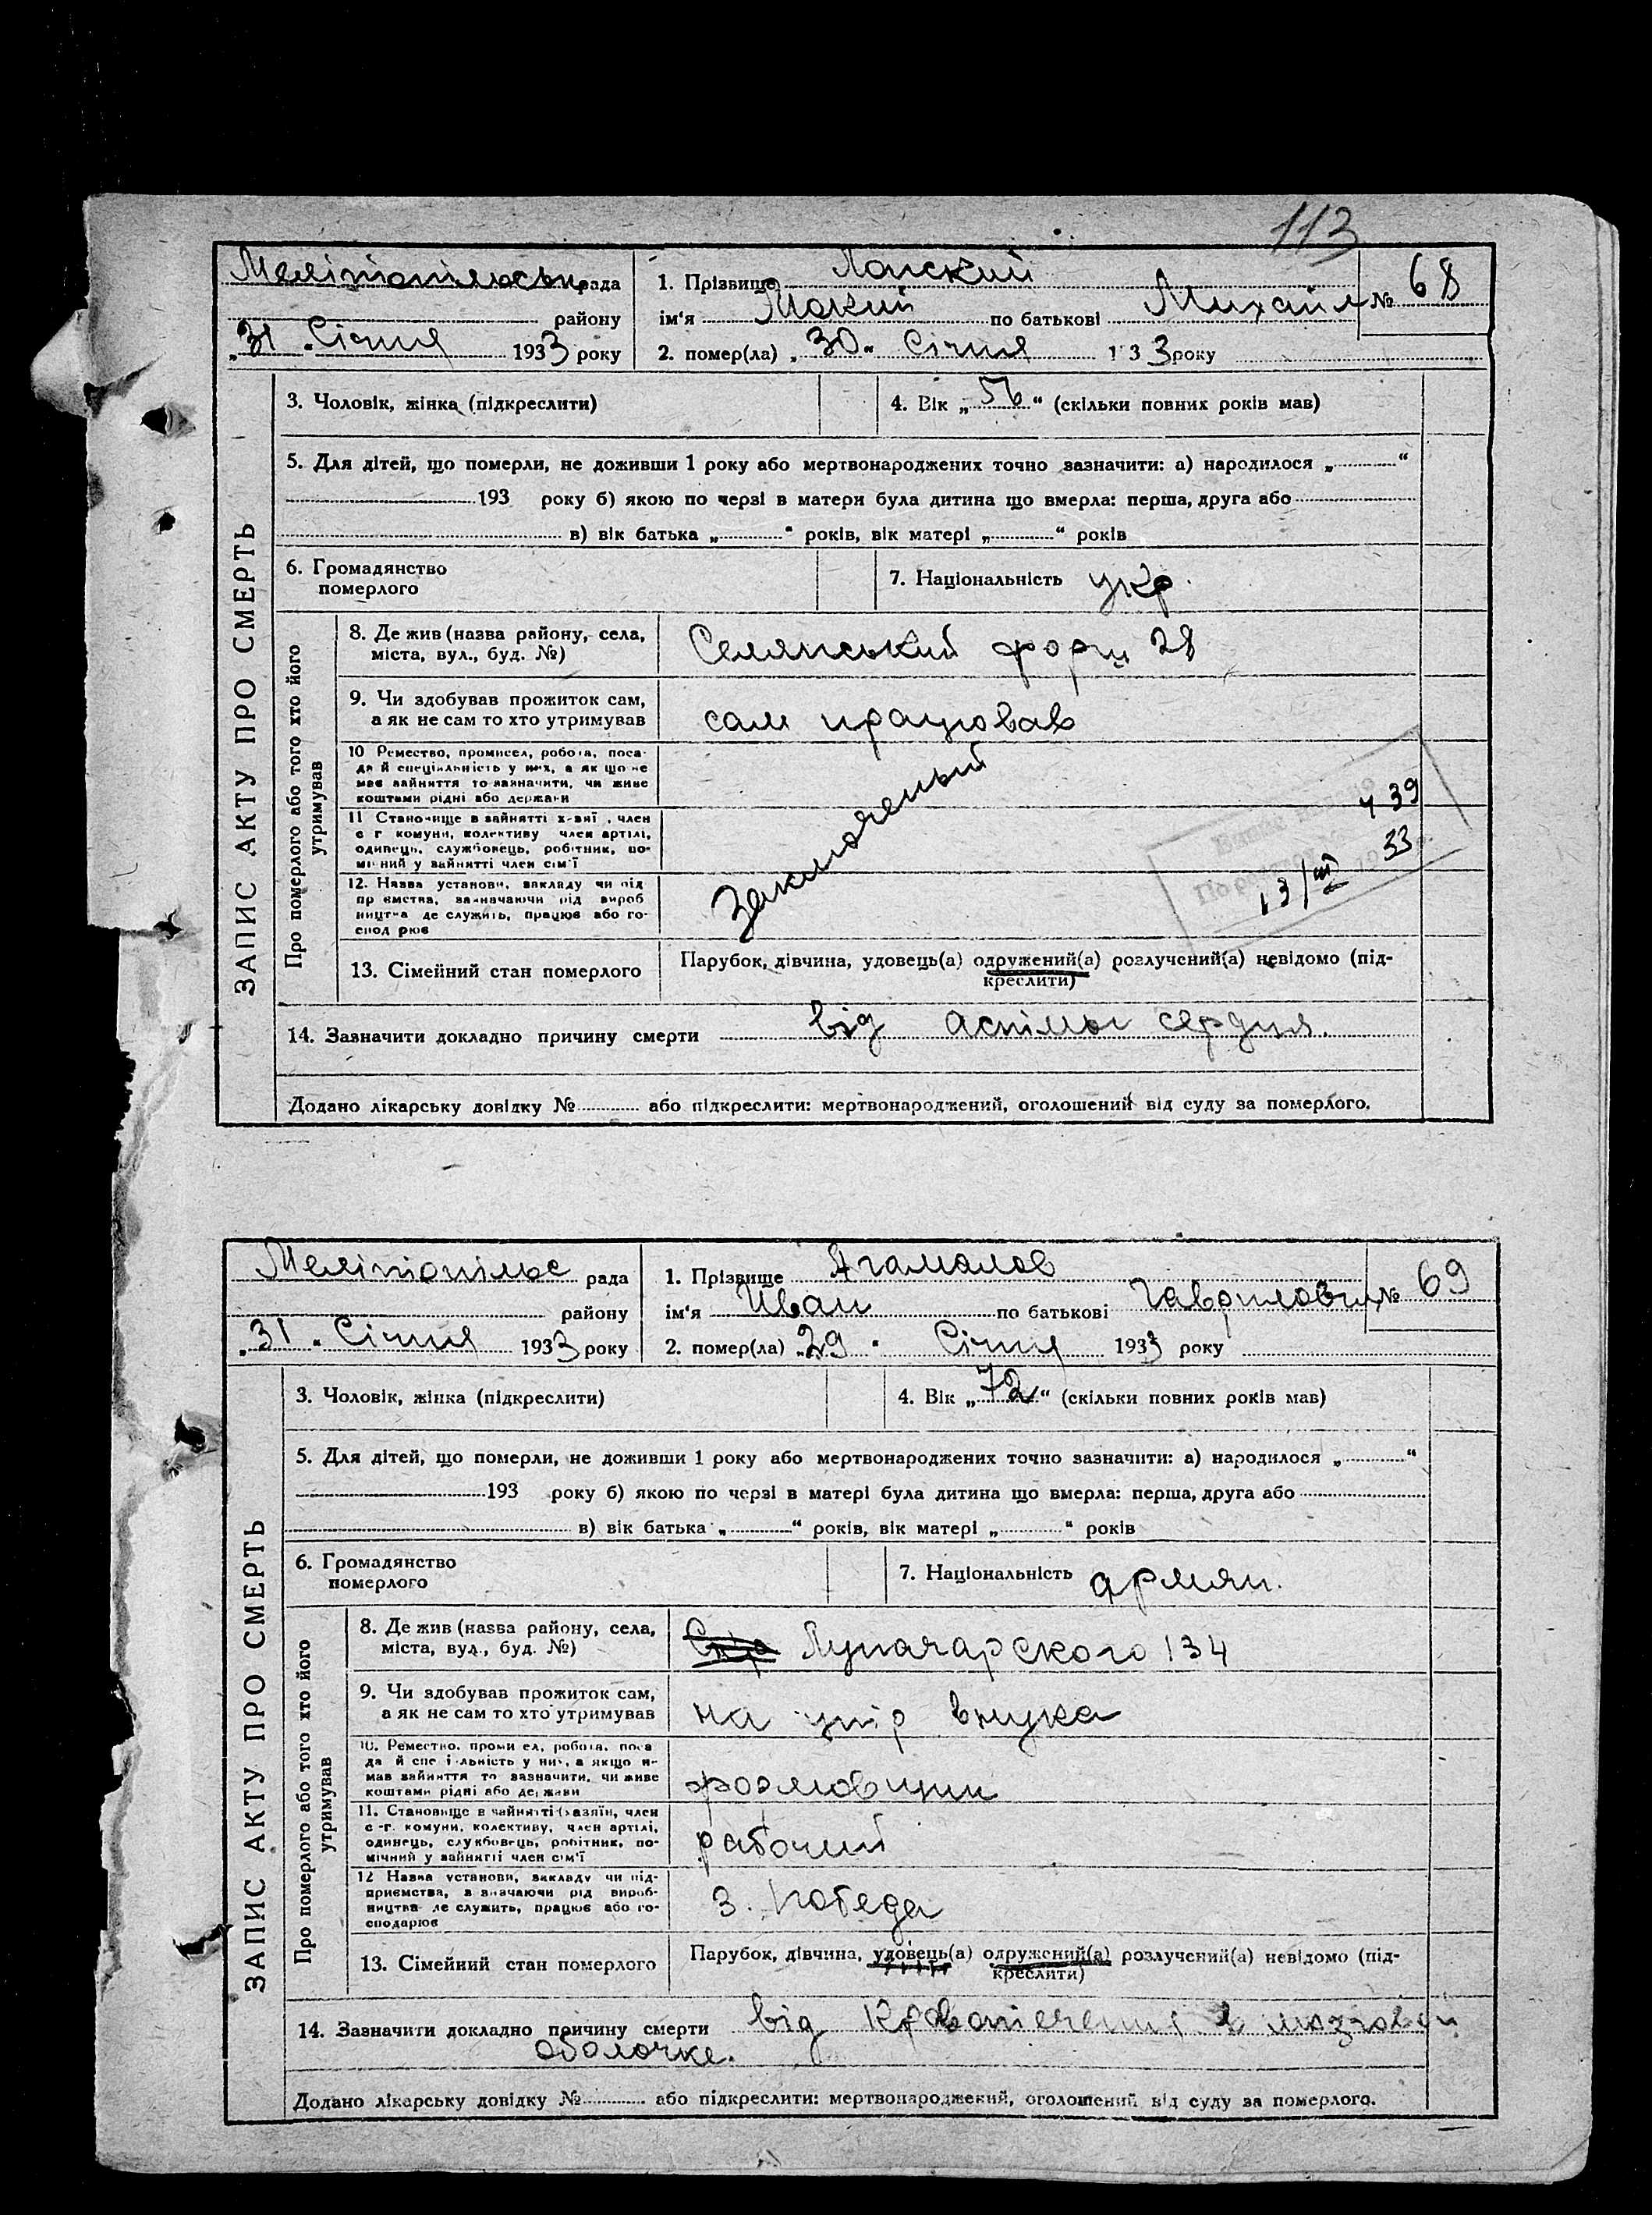 113
Мелітопільськ рада
району
„31 „ Січня 1933 року
1. Прізвище Лапский
ім'я Мокий по батькові Михайл № 68
2. помер(ла) „30“ Січня 1 33 року
ЗАПИС АКТУ ПРО СМЕРТЬ
3. Чоловік, жінка (підкреслити)
4. Вік „56“ (скільки повних років мав)
5. Для дітей, що померли, не доживши 1 року або мертвонароджених точно зазначити: а) народилося „ “
193 року б) якою по черзі в матери була дитина що вмерла: перша, друга або
в) вік батька „ “ років, вік матері „ “ років
6. Громадянство
померлого
7. Національність укр.
Про померлого або того хто його
утримував
8. Де жив (назва району, села,
міста, вул., буд. №)
Селянський форш 28
9. Чи здобував прожиток сам,
а як не сам то хто утримував
сам працював
10 Ремество, промисел, робота, поса-
да й спеціальність у них, а як що не
має зайняття то зазначити, чи живе
коштами рідні або держави
11 Становище в зайнятті х-зяї , член
с г комуни, колективу член артілі,
одинець, службовець, робітник, по-
мічний у зайнятті член сім'ї
12. Назва установи, закладу чи під
пр ємства, зазначаючи рід вироб
ництва де служить, працює або го-
спод рює
Заключеный
439
33
13/III
13. Сімейний стан померлого
Парубок, дівчина, удовець(а) одружений(а) розлучений(а) невідомо (під-
креслити)
14. Зазначити докладно причину смерти від астмы сердця.
Додано лікарську довідку № або підкреслити: мертвонароджений, оголошений від суду за померлого.
Мелітопільс рада
району
„31 „ Січня 1933 року
1. Прізвище Агамалов
ім'я Иван по батькові Гаврилович № 69
2. помер(ла) „29 “ Січня 1933 року
ЗАПИС АКТУ ПРО СМЕРТЬ
3. Чоловік, жінка (підкреслити)
4. Вік „72“ (скільки повних років мав)
5. Для дітей, що померли, не доживши 1 року або мертвонароджених точно зазначити: а) народилося „ “
193 року б) якою по черзі в матері була дитина що вмерла: перша, друга або
в) вік батька „ “ років, вік матері „ “ років
6. Громадянство
померлого
7. Національність армян.
Про померлого або того хто його
утримував
8. Де жив (назва району, села,
міста, вул., буд. №)
Луначарского 134
9. Чи здобував прожиток сам,
а як не сам то хто утримував
на утр внука
10. Ремество, проми ел, робота, поса
да й спе і льність у них, а якщо н-
мав зайняття то зазначити, чи живе
коштами рідні або держави
формовщик
11. Становище в зайнятті хазяїн, член
с -г. комуни, колективу, член артілі,
одинець, службовець, робітник, по-
мічний у зайнятті член сім'ї
рабочий
12 Назва установи, закладу чи під-
приємства, з значаючи рід вироб-
ництва де служить, працює або го-
сподарює
З. Победа
13. Сімейний стан померлого
Парубок, дівчина, удовець(а) одружений(а) розлучений(а) невідомо (під-
креслити)
14. Зазначити докладно причину смерти від кровотечения в мозговой
оболочке.
Додано лікарську довідку № або підкреслити: мертвонароджений, оголошений від суду за померлого.